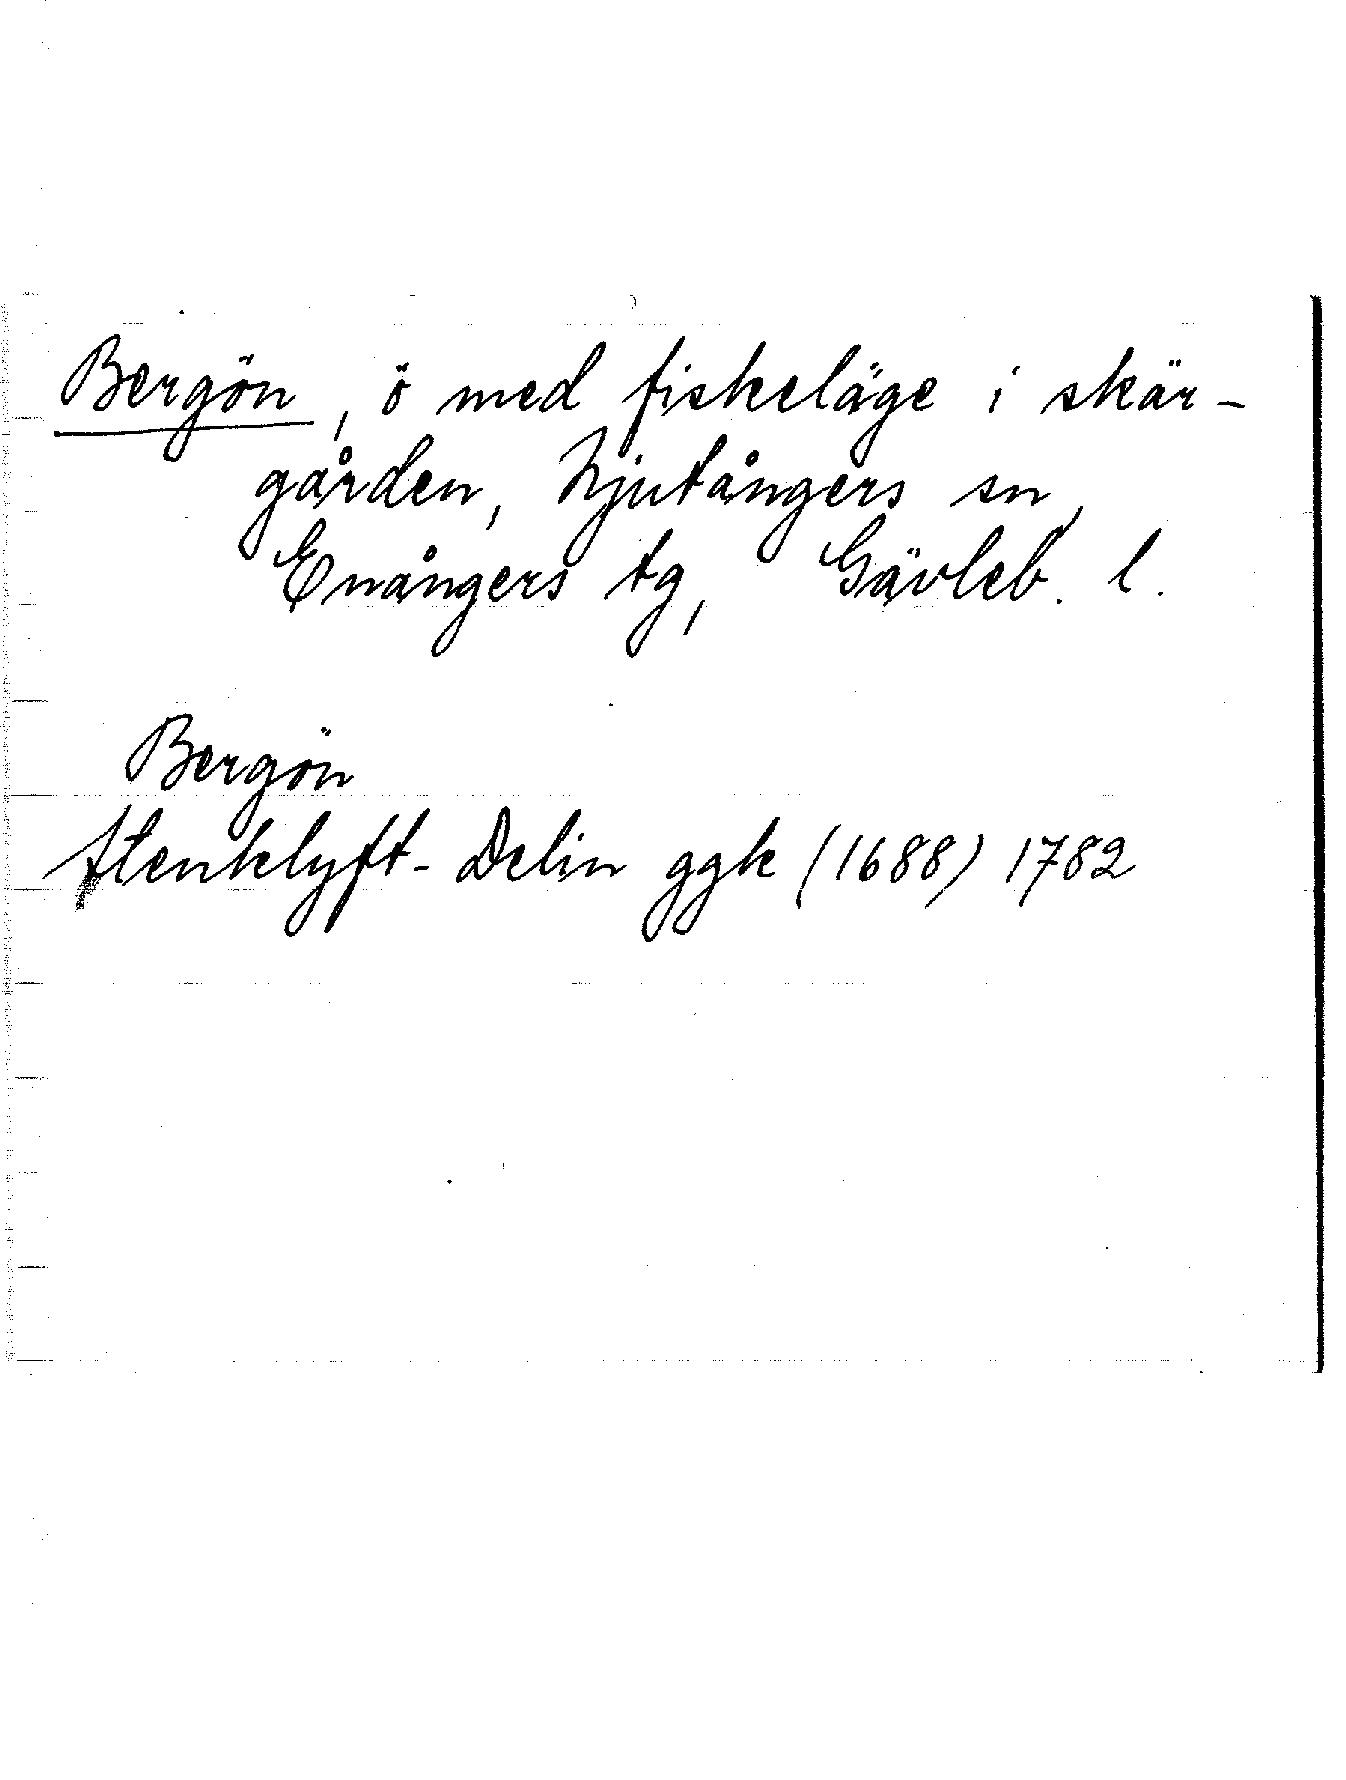 Bergön, ö med fiskeläge i skär-
gården, Njutångers sn,
Enångers tg, Gävleb. l.
Bergön
Stenklyft-Delin ggk (1688) 1782